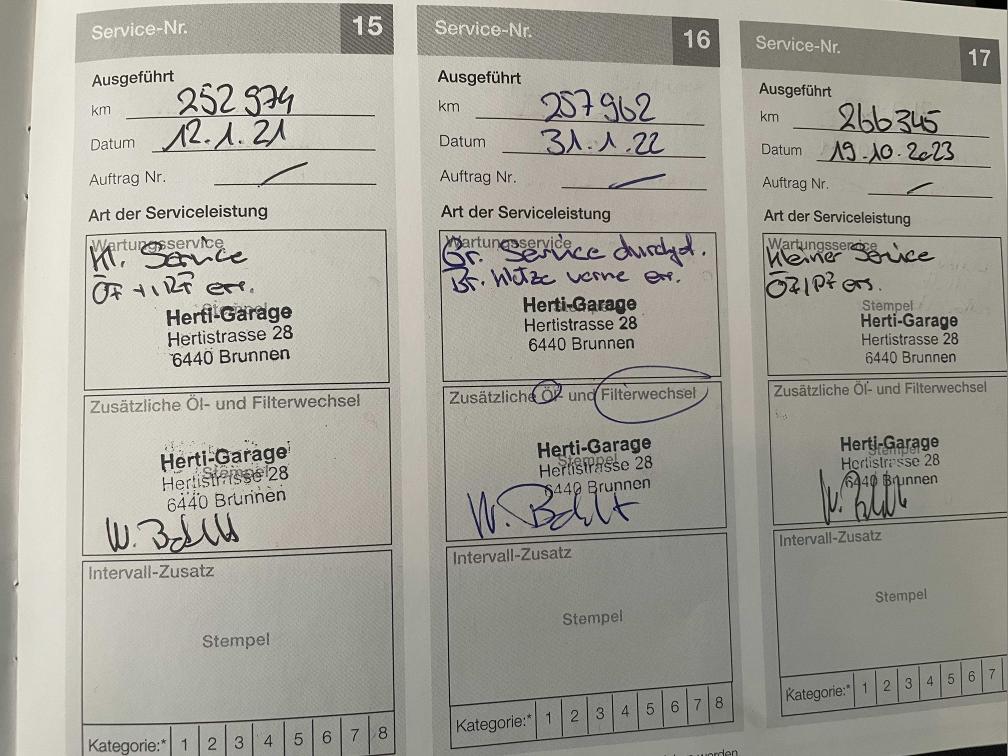 Service-Nr. 15
Ausgeführt
km 252 974
Datum 12.1.21
Auftrag Nr.
Art der Serviceleistung
Wartungsservice
Kl. Service
ÖF + IPF ers.
Stempel
Herti-Garage
Hertistrasse 28
6440 Brunnen
Zusätzliche Öl- und Filterwechsel
Herti-Garage
Stempel
Hertistrasse 28
6440 Brunnen
Intervall-Zusatz
Stempel
Kategorie:* 1 2 3 4 5 6 7 8
Service-Nr. 16
Ausgeführt
km 257962
Datum 31.1.22
Auftrag Nr.
Art der Serviceleistung
Wartungsservice
Gr. Service durchgef.
Br. klötze vorne ers.
Stempel
Herti-Garage
Hertistrasse 28
6440 Brunnen
Zusätzliche Öl- und Filterwechsel
Herti-Garage
Stempel
Hertistrasse 28
6440 Brunnen
Intervall-Zusatz
Stempel
Kategorie:* 1 2 3 4 5 6 7 8
Service-Nr. 17
Ausgeführt
km 266345
Datum 19.10.2023
Auftrag Nr.
Art der Serviceleistung
Wartungsservice
Kleiner Service
ÖF IPF ers.
Stempel
Herti-Garage
Hertistrasse 28
6440 Brunnen
Zusätzliche Öl- und Filterwechsel
Herti-Garage
Stempel
Hertistrasse 28
6440 Brunnen
Intervall-Zusatz
Stempel
Kategorie:* 1 2 3 4 5 6 7
worden